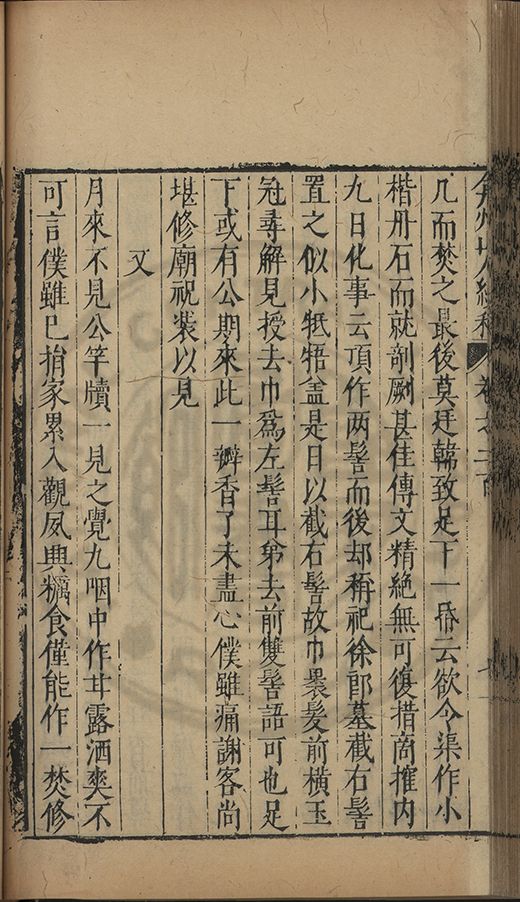 弇州山人續稿 卷之二百
几而焚之最後莫廷韓致足下一帋云欲令渠作小
楷丹石而就剞劂甚佳傳文精絕無可復措商搉內
九日化事云項作两髻而後却稱祀徐郎墓截右髻
置之似小牴牾盖是日以截右髻故巾褁髪前横玉
冠尋解見授去巾爲左髻耳第去前雙髻語可也足
下或有公期來此一瓣香了未盡心僕雖痛謝客尚
堪修廟祝裝以見
又
月來不見公竿牘一見之覺九咽中作甘露洒奭不
可言僕雖已捐家累入觀夙興糲食僅能作一焚修